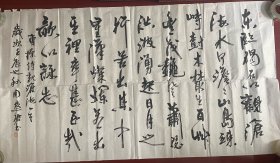 東臨碣石以觀滄
海水何澹澹山島竦
峙樹木叢生百草
豐茂秋風蕭瑟
洪波湧起日月之
行若出其中
星漢燦爛若出
其里幸甚至哉
歌以詠志